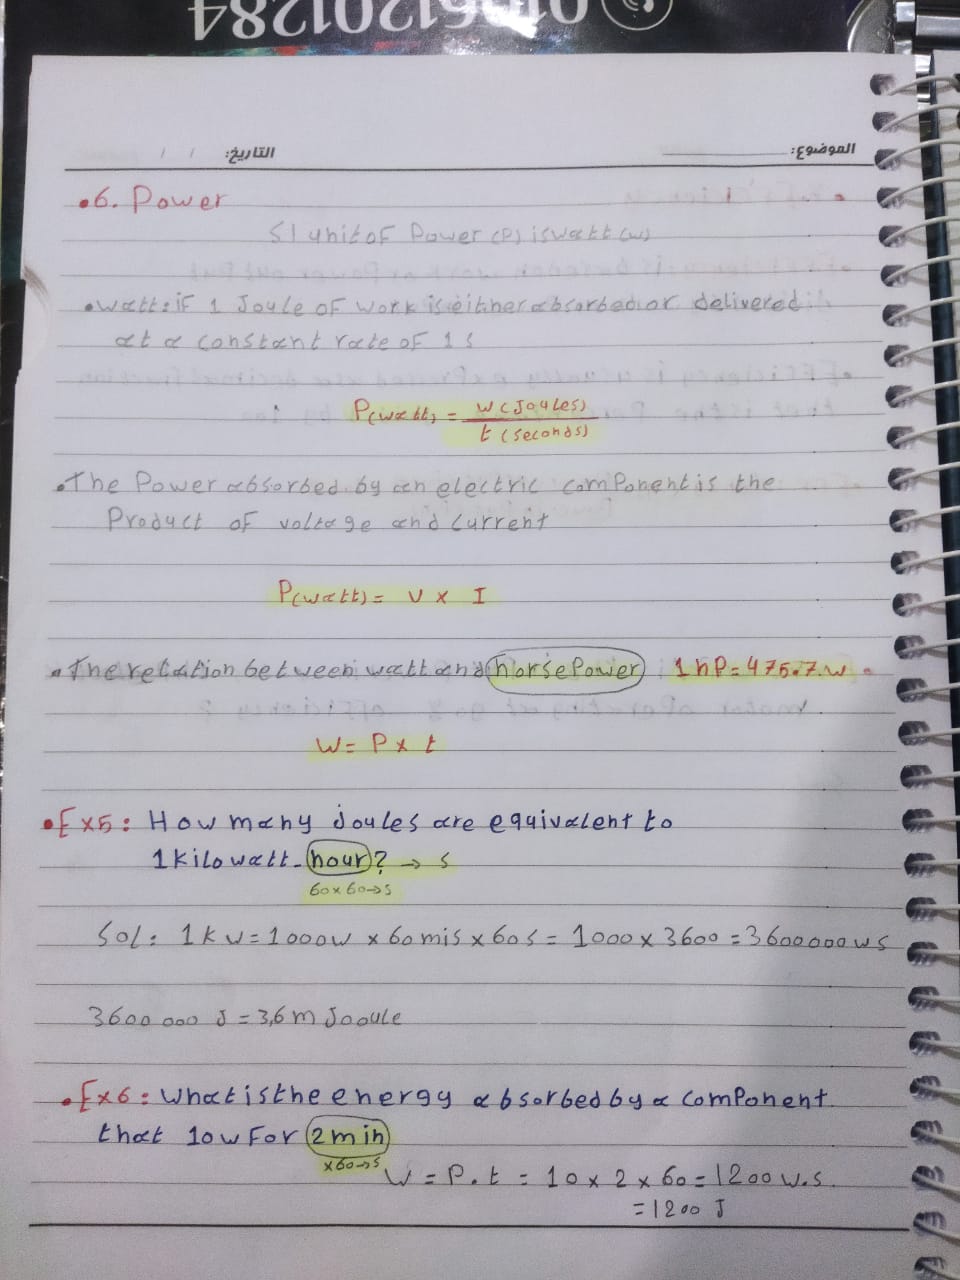 01061201284
الموضوع:
التاريخ: / /
•6. Power
SI unit of Power (P) is watt (w)
•watt: if 1 Joule of work is either absorbed or delivered
at a constant rate of 1 s
P(watt) = W(Joules) / t (seconds)
•The Power absorbed by an electric component is the
Product of voltage and current
P(watt) = V x I
•The relation between watt and horse Power 1 hP = 475.7.w
W = P x t
•Ex5: How many joules are equivalent to
1 kilowatt-hour? → s
60x60→s
Sol: 1 k w = 1000w x 60 mis x 60 s = 1000 x 3600 = 3600000 w s
3600 000 J = 3,6 m Jooule
•Ex6: What is the energy absorbed by a component
that 10 w For 2 min
x60→s
W = P.t = 10 x 2 x 60 = 1200 w.s.
= 1200 J